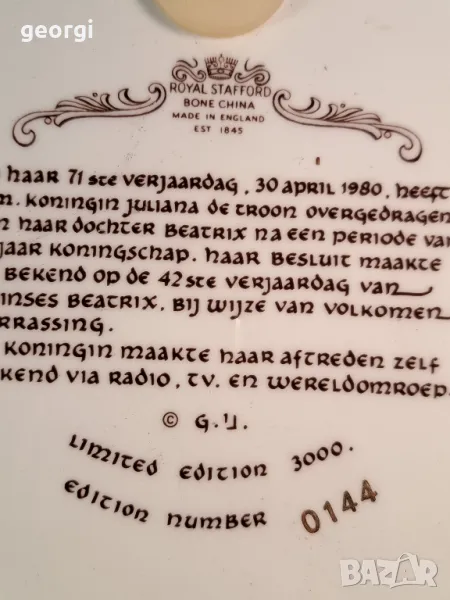 georgi
ROYAL STAFFORD
BONE CHINA
MADE IN ENGLAND
EST 1845
HAAR 71 STE VERJAARDAG, 30 APRIL 1980, HEEFT
M. KONINGIN JULIANA DE TROON OVERGEDRAGEN
N HAAR DOCHTER BEATRIX NA EEN PERIODE VAN
JAAR KONINGSCHAP. HAAR BESLUIT MAAKTE
BEKEND OP DE 42 STE VERJAARDAG VAN
INSES BEATRIX. BIJ WIJZE VAN VOLKOMEN
RRASSING.
KONINGIN MAAKTE HAAR AFTREDEN ZELF
KEND VIA RADIO, TV. EN WERELDOMROEP.
© G.U.
LIMITED EDITION 3000.
EDITION NUMBER 0144
BAZAR